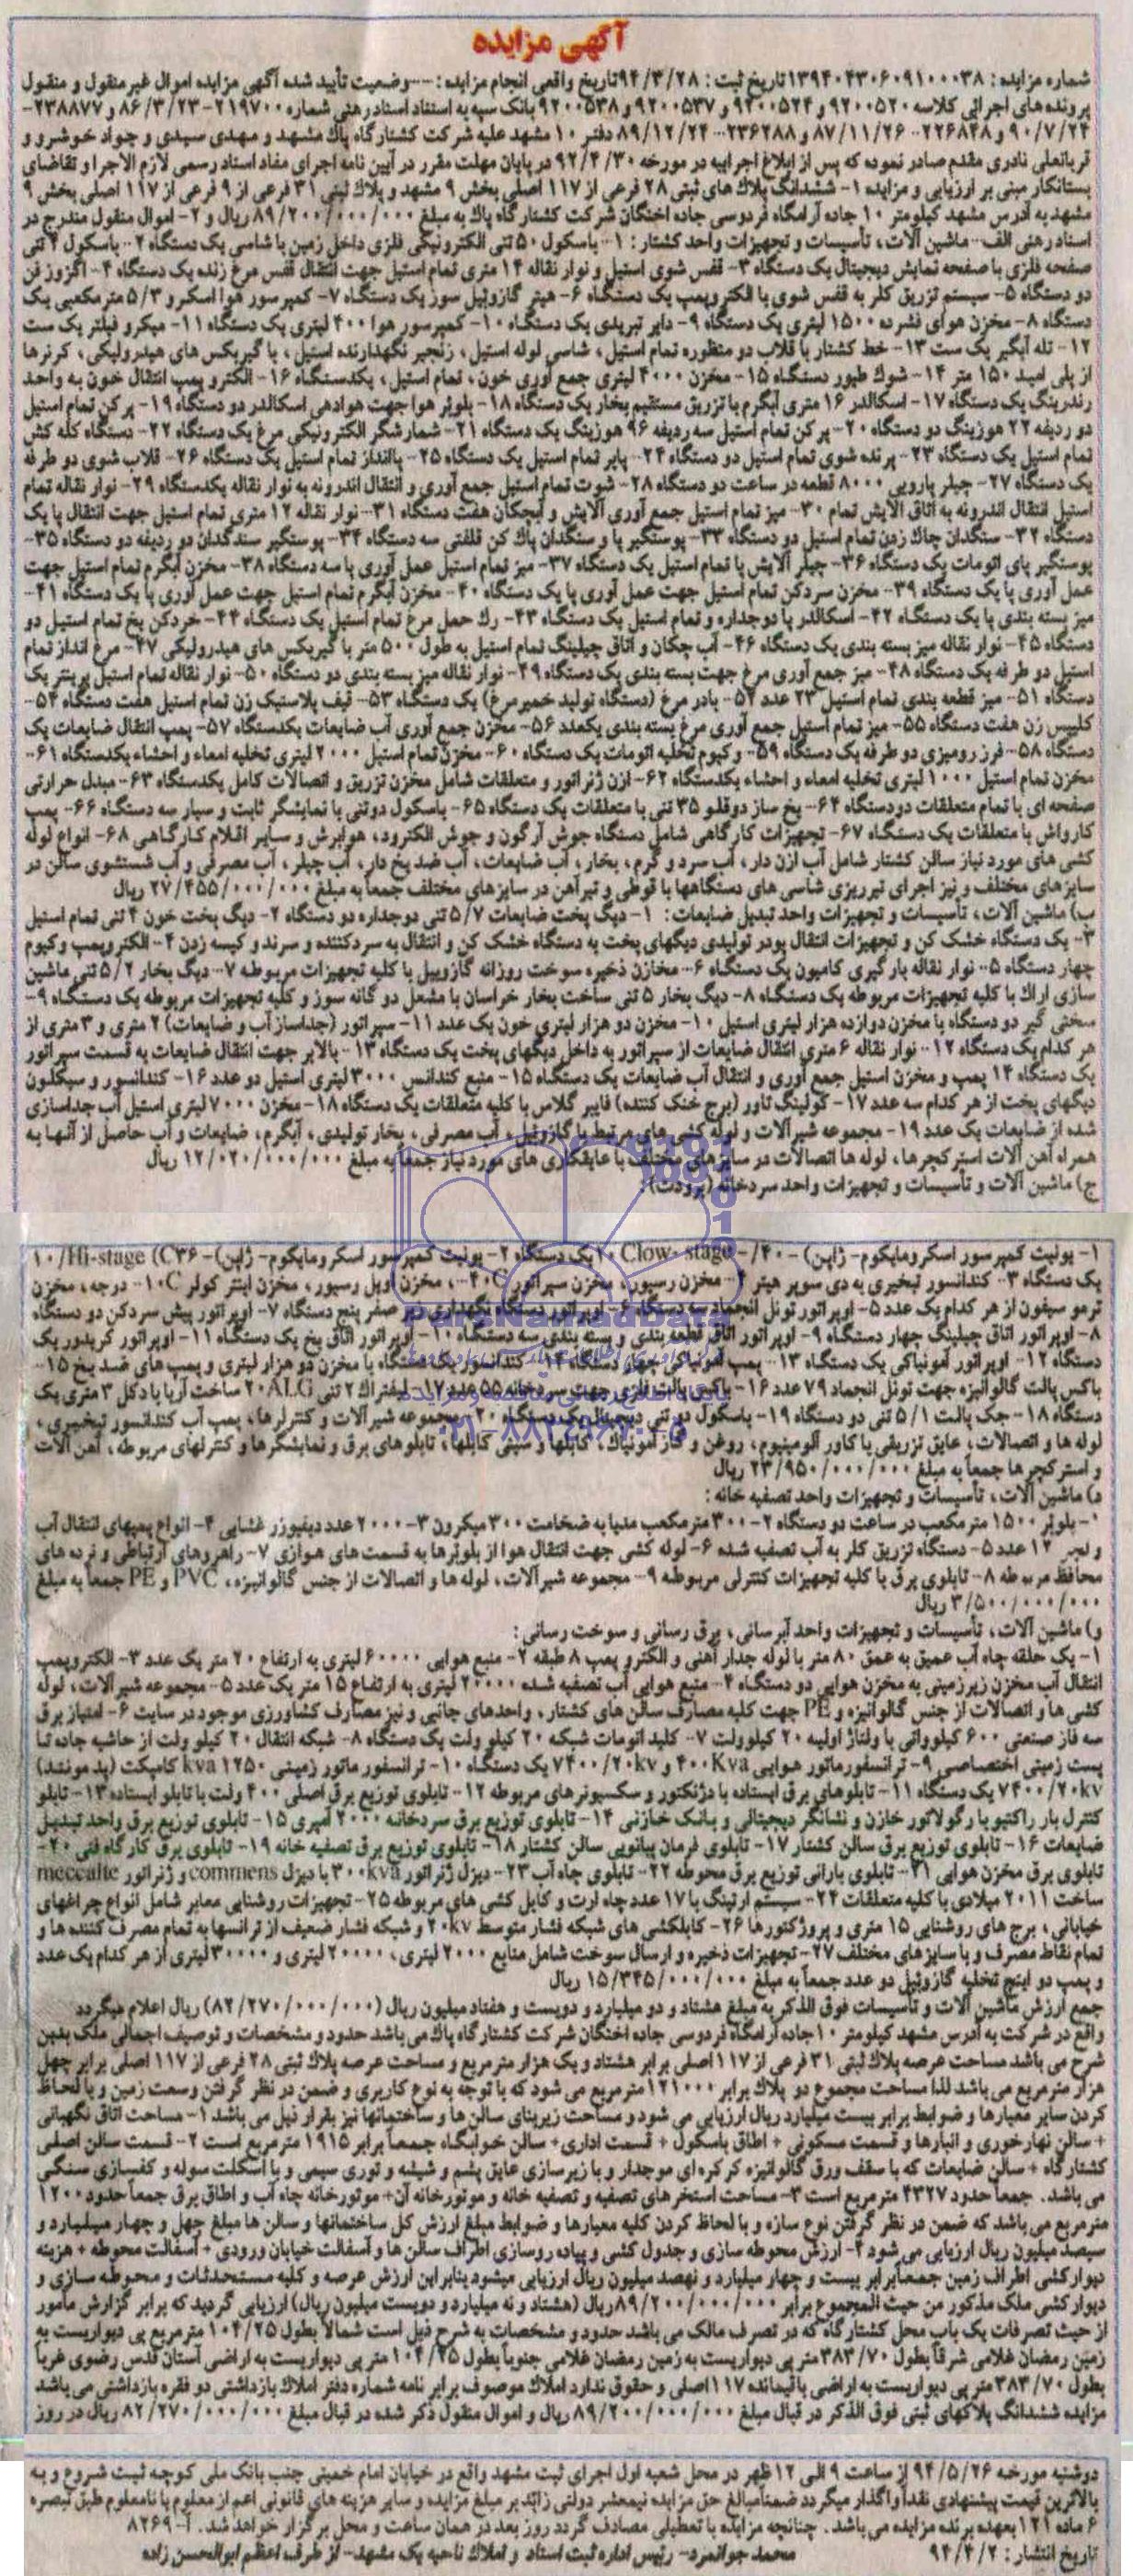 آگهی مزایده
شماره مزایده: ۱۳۹۴۰۴۳۰۶۰۹۱۰۰۰۳۸ تاریخ ثبت: ۹۴/۳/۲۸ تاریخ واقعی انجام مزایده: --وضعیت تأیید شده آگهی مزایده اموال غیر منقول و منقول
پرونده های اجرائی کلاسه ۹۲۰۰۵۲۰ و ۹۲۰۰۵۲۴ و ۹۲۰۰۵۳۷ و ۹۲۰۰۵۳۸ بانک سپه به استناد اسناد رهنی شماره ۲۱۹۷۰۰-۸۶/۳/۲۳ و ۲۳۸۸۷۷-
۹۰/۷/۲۴ و ۲۲۶۸۴۸-۸۷/۱۱/۲۶ و ۲۳۶۲۸۸-۸۹/۱۲/۲۴ دفتر ۱۰ مشهد علیه شرکت کشتارگاه پاک مشهد و مهدی سیدی و جواد خوشرو و
قربانعلی نادری مقدم صادر نموده که پس از ابلاغ اجراییه در مورخه ۹۲/۴/۳۰ در پایان مهلت مقرر در آیین نامه اجرای مفاد اسناد رسمی لازم الاجرا و تقاضای
بستانکار مبنی بر ارزیابی و مزایده ۱- ششدانگ پلاک های ثبتی ۲۸ فرعی از ۱۱۷ اصلی بخش ۹ مشهد و پلاک ثبتی ۳۱ فرعی از ۹ فرعی از ۱۱۷ اصلی بخش ۹
مشهد به آدرس مشهد کیلومتر ۱۰ جاده آرامگاه فردوسی جاده اخنگان شرکت کشتارگاه پاک به مبلغ ۸۹/۲۰۰/۰۰۰/۰۰۰ ریال و ۲- اموال منقول مندرج در
اسناد رهنی الف- ماشین آلات، تأسیسات و تجهیزات واحد کشتار: ۱- باسکول ۵۰ تنی الکترونیکی فلزی داخل زمین با شاسی یک دستگاه ۲- باسکول ۴ تنی
صفحه فلزی با صفحه نمایش دیجیتال یک دستگاه ۳- قفس شوی استیل و نوار نقاله ۱۴ متری تمام استیل جهت انتقال قفس مرغ زنده یک دستگاه ۴- اگزوز فن
دو دستگاه ۵- سیستم تزریق کلر به قفس شوی با الکتروپمپ یک دستگاه ۶- هیتر گازوئیل سوز یک دستگاه ۷- کمپرسور هوا اسکرو ۵/۳ مترمکعبی یک
دستگاه ۸- مخزن هوای فشرده ۱۵۰۰ لیتری یک دستگاه ۹- دایر تبریدی یک دستگاه ۱۰- کمپرسور هوا ۴۰۰ لیتری یک دستگاه ۱۱- میکرو فیلتر یک ست
۱۲- تله آبگیر یک ست ۱۳- خط کشتار با قلاب دو منظوره تمام استیل، شاسی لوله استیل، زنجیر نگهدارنده استیل، با گیربکس های هیدرولیکی، کرنرها
از پلی امید ۱۵۰ متر ۱۴- شوک طیور دستگاه ۱۵- مخزن ۴۰۰۰ لیتری جمع آوری خون، تمام استیل، یکدستگاه ۱۶- الکترو پمپ انتقال خون به واحد
رندرینگ یک دستگاه ۱۷- اسکالدر ۱۶ متری آبگرم با تزریق مستقیم بخار یک دستگاه ۱۸- بلوئر هوا جهت هوادهی اسکالدر دو دستگاه ۱۹- پرکن تمام استیل
دو ردیفه ۲۲ هوزینگ دو دستگاه ۲۰- پرکن تمام استیل سه ردیفه ۹۶ هوزینگ یک دستگاه ۲۱- شمارشگر الکترونیکی مرغ یک دستگاه ۲۲- دستگاه کله کش
تمام استیل یک دستگاه ۲۳- پرنده شوی تمام استیل دو دستگاه ۲۴- پابر تمام استیل یک دستگاه ۲۵- پاانداز تمام استیل یک دستگاه ۲۶- قلاب شوی دو طرفه
یک دستگاه ۲۷- چیلر پارویی ۸۰۰۰ قطعه در ساعت دو دستگاه ۲۸- شوت تمام استیل جمع آوری و انتقال اندرونه به نوار نقاله یکدستگاه ۲۹- نوار نقاله تمام
استیل انتقال اندرونه به اتاق الایش تمام ۳۰- میز تمام استیل جمع آوری آلایش و آبچکان هفت دستگاه ۳۱- نوار نقاله ۱۲ متری تمام استیل جهت انتقال پا یک
دستگاه ۳۲- سنگدان چاک زدن تمام استیل دو دستگاه ۳۳- پوستگیر پا و سنگدان پاک کن قلفتی سه دستگاه ۳۴- پوستگیر سنگدان دو ردیفه دو دستگاه ۳۵-
پوستگیر پای اتومات یک دستگاه ۳۶- چیلر آلایش پا تمام استیل یک دستگاه ۳۷- میز تمام استیل عمل آوری پا سه دستگاه ۳۸- مخزن آبگرم تمام استیل جهت
عمل آوری پا یک دستگاه ۳۹- مخزن سردکن تمام استیل جهت عمل آوری پا یک دستگاه ۴۰- مخزن آبگرم تمام استیل جهت عمل آوری پا یک دستگاه ۴۱-
میز بسته بندی پا یک دستگاه ۴۲- اسکالدر پا دوجداره و تمام استیل یک دستگاه ۴۳- رک حمل مرغ تمام استیل یک دستگاه ۴۴- خردکن یخ تمام استیل دو
دستگاه ۴۵- نوار نقاله میز بسته بندی یک دستگاه ۴۶- آب چکان و اتاق چیلینگ تمام استیل به طول ۵۰۰ متر با گیربکس های هیدرولیکی ۴۷- مرغ انداز تمام
استیل دو طرفه یک دستگاه ۴۸- میز جمع آوری مرغ جهت بسته بندی یک دستگاه ۴۹- نوار نقاله میز بسته بندی دو دستگاه ۵۰- نوار نقاله تمام استیل پرینتر یک
دستگاه ۵۱- میز قطعه بندی تمام استیل ۲۳ عدد ۵۲- پادر مرغ (دستگاه تولید خمیرمرغ) یک دستگاه ۵۳- قیف پلاستیک زن تمام استیل هفت دستگاه ۵۴-
کلیپس زن هفت دستگاه ۵۵- میز تمام استیل جمع آوری مرغ بسته بندی یکعدد ۵۶- مخزن جمع آوری آب ضایعات یکدستگاه ۵۷- پمپ انتقال ضایعات یک
دستگاه ۵۸- فرز رومیزی دو طرفه یک دستگاه ۵۹- وکیوم تخلیه اتومات یک دستگاه ۶۰- مخزن تمام استیل ۲۰۰۰ لیتری تخلیه امعاء و احشاء یکدستگاه ۶۱-
مخزن تمام استیل ۱۰۰۰ لیتری تخلیه امعاء و احشاء یکدستگاه ۶۲- ازن ژنراتور و متعلقات شامل مخزن تزریق و اتصالات کامل یکدستگاه ۶۳- مبدل حرارتی
صفحه ای با تمام متعلقات دو دستگاه ۶۴- یخ ساز دوقلو ۳۵ تنی با متعلقات یک دستگاه ۶۵- باسکول دوتنی با نمایشگر ثابت و سیار سه دستگاه ۶۶- پمپ
کارواش با متعلقات یک دستگاه ۶۷- تجهیزات کارگاهی شامل دستگاه جوش آرگون و جوش الکترود، هوابرش و سایر اقلام کارگاهی ۶۸- انواع لوله
کشی های مورد نیاز سالن کشتار شامل آب ازن دار، آب سرد و گرم، بخار، آب ضایعات، آب ضد یخ دار، آب چیلر، آب مصرفی و آب شستشوی سالن در
سایزهای مختلف و نیز اجرای تیرریزی شاسی های دستگاهها با قوطی و تیرآهن در سایزهای مختلف جمعاً به مبلغ ۲۷/۴۵۵/۰۰۰/۰۰۰ ریال
ب) ماشین آلات، تأسیسات و تجهیزات واحد تبدیل ضایعات: ۱- دیگ پخت ضایعات ۵/۷ تنی دوجداره دو دستگاه ۲- دیگ پخت خون ۴ تنی تمام استیل
۳- یک دستگاه خشک کن و تجهیزات انتقال پودر تولیدی دیگهای پخت به دستگاه خشک کن و انتقال به سردکننده و سرند و کیسه زدن ۴- الکتروپمپ وکیوم
چهار دستگاه ۵- نوار نقاله بارگیری کامیون یک دستگاه ۶- مخازن ذخیره سوخت روزانه گازوییل با کلیه تجهیزات مربوطه ۷- دیگ بخار ۵/۲ تنی ماشین
سازی اراک با کلیه تجهیزات مربوطه یک دستگاه ۸- دیگ بخار ۵ تنی ساخت بخار خراسان با مشعل دو گانه سوز و کلیه تجهیزات مربوطه یک دستگاه ۹-
سختی گیر دو دستگاه با مخزن دوازده هزار لیتری استیل ۱۰- مخزن دو هزار لیتری خون یک عدد ۱۱- سپراتور (جداساز آب و ضایعات) ۲ متری و ۳ متری از
هر کدام یک دستگاه ۱۲- نوار نقاله ۶ متری انتقال ضایعات از سپراتور به داخل دیگهای پخت یک دستگاه ۱۳- بالابر جهت انتقال ضایعات به قسمت سپراتور
یک دستگاه ۱۴ پمپ و مخزن استیل جمع آوری و انتقال آب ضایعات یک دستگاه ۱۵- منبع کندانس ۳۰۰۰ لیتری استیل دو عدد ۱۶- کندانسور و سیکلون
دیگهای پخت از هر کدام سه عدد ۱۷- کولینگ تاور (برج خنک کننده) فایبر گلاس با کلیه متعلقات یک دستگاه ۱۸- مخزن ۷۰۰۰ لیتری استیل آب جداسازی
شده از ضایعات یک عدد ۱۹- مجموعه شیرآلات و لوله کشی های مرتبط با گازوئیل، آب مصرفی، بخار تولیدی، آبگرم، ضایعات و آب حاصل از آنها به
همراه آهن آلات استرکچرها، لوله ها اتصالات در سایزهای مختلف با عایقکاری های مورد نیاز جمعاً به مبلغ ۱۲/۰۲۰/۰۰۰/۰۰۰ ریال
ج) ماشین آلات و تأسیسات و تجهیزات واحد سردخانه (برودت):
۱- یونیت کمپرسور اسکرومایکوم- ژاپن) -۴۰/- Clow- stage ۲۰ یک دستگاه ۲- یونیت کمپرسور اسکرومایکوم- ژاپن)- Hi-stage (C۳۶/۱۰
یک دستگاه ۳- کندانسور تبخیری به دی سوپر هیتر ۴- مخزن رسیور، مخزن سپراتور ۴۰C-، مخزن اویل رسیور، مخزن اینتر کولر ۱۰C- درجه، مخزن
ترمو سیفون از هر کدام یک عدد ۵- اوپراتور تونل انجماد سه دستگاه ۶- اوپراتور دستگاه نگهداری صفر پنج دستگاه ۷- اوپراتور پیش سردکن دو دستگاه
۸- اوپراتور اتاق چیلینگ چهار دستگاه ۹- اوپراتور اتاق قطعه بندی و بسته بندی سه دستگاه ۱۰- اوپراتور اتاق یخ یک دستگاه ۱۱- اوپراتور کریدور یک
دستگاه ۱۲- اوپراتور آمونیاکی یک دستگاه ۱۳- پمپ آمونیاکی چهار دستگاه ۱۴- کندانسور یک دستگاه با مخزن دو هزار لیتری و پمپ های ضد یخ ۱۵-
باکس پالت گالوانیزه جهت تونل انجماد ۷۹ عدد ۱۶- باکس پالت فلزی جهت سردخانه ۵۵ عدد ۱۷- لیفتراک ۲ تنی ۲۰ALG ساخت آریا با دکل ۳ متری یک
دستگاه ۱۸- جک پالت ۵/۱ تنی دو دستگاه ۱۹- باسکول دو تنی دیجیتال یک دستگاه ۲۰- مجموعه شیرآلات و کنترلرها، پمپ آب کندانسور تبخیری،
لوله ها و اتصالات، عایق تزریقی با کاور آلومینیوم، روغن و گاز آمونیاک، کابلها و سینی کابلها، تابلوهای برق و نمایشگرها و کنترلهای مربوطه، آهن آلات
و استرکچرها جمعاً به مبلغ ۲۳/۹۵۰/۰۰۰/۰۰۰ ریال
د) ماشین آلات، تأسیسات و تجهیزات واحد تصفیه خانه:
۱- بلوئر ۱۵۰۰ مترمکعب در ساعت دو دستگاه ۲- ۳۰۰ مترمکعب مدیا به ضخامت ۳۰۰ میکرون ۳- ۲۰۰۰ عدد دیفیوزر غشایی ۴- انواع پمپهای انتقال آب
و لجن ۱۲ عدد ۵- دستگاه تزریق کلر به آب تصفیه شده ۶- لوله کشی جهت انتقال هوا از بلوئرها به قسمت های هوازی ۷- راهروهای ارتباطی و نرده های
محافظ مربوطه ۸- تابلوی برق با کلیه تجهیزات کنترلی مربوطه ۹- مجموعه شیرآلات، لوله ها و اتصالات از جنس گالوانیزه، PVC و PE جمعاً به مبلغ
۳/۵۰۰/۰۰۰/۰۰۰ ریال
و) ماشین آلات، تأسیسات و تجهیزات واحد آبرسانی، برق رسانی و سوخت رسانی:
۱- یک حلقه چاه آب عمیق به عمق ۸۰ متر با لوله جدار آهنی و الکترو پمپ ۸ طبقه ۲- منبع هوایی ۶۰۰۰۰ لیتری به ارتفاع ۲۰ متر یک عدد ۳- الکتروپمپ
انتقال آب مخزن زیرزمینی به مخزن هوایی دو دستگاه ۴- منبع هوایی آب تصفیه شده ۲۰۰۰۰ لیتری به ارتفاع ۱۵ متر یک عدد ۵- مجموعه شیرآلات، لوله
کشی ها و اتصالات از جنس گالوانیزه و PE جهت کلیه مصارف سالن های کشتار، واحدهای جانبی و نیز مصارف کشاورزی موجود در سایت ۶- امتیاز برق
سه فاز صنعتی ۶۰۰ کیلوواتی با ولتاژ اولیه ۲۰ کیلوولت ۷- کلید اتومات شبکه ۲۰ کیلو ولت یک دستگاه ۸- شبکه انتقال ۲۰ کیلو ولت از حاشیه جاده تا
پست زمینی اختصاصی ۹- ترانسفورماتور هوایی ۴۰۰Kva و ۷۴۰۰/۲۰kv یک دستگاه ۱۰- ترانسفور ماتور زمینی ۱۲۵۰ kva کامپکت (پد مونتد)
۷۴۰۰/۲۰kv یک دستگاه ۱۱- تابلوهای برق ایستاده با دژنکتور و سکسیونرهای مربوطه ۱۲- تابلوی توزیع برق اصلی ۴۰۰ ولت با تابلو ایستاده ۱۳- تابلو
کنترل بار راکتیو با رگولاتور خازن و نشانگر دیجیتالی و بانک خازنی ۱۴- تابلوی توزیع برق سردخانه ۲۰۰۰ آمپری ۱۵- تابلوی توزیع برق واحد تبدیل
ضایعات ۱۶- تابلوی توزیع برق سالن کشتار ۱۷- تابلوی فرمان پیانویی سالن کشتار ۱۸- تابلوی توزیع برق تصفیه خانه ۱۹- تابلوی برق کارگاه فنی ۲۰-
تابلوی برق مخزن هوایی ۲۱- تابلوی بارانی توزیع برق محوطه ۲۲- تابلوی چاه آب ۲۳- دیزل ژنراتور ۳۰۰kva با دیزل commens و ژنراتور meccalte
ساخت ۲۰۱۱ میلادی با کلیه متعلقات ۲۴- سیستم ارتینگ با ۱۷ عدد چاه ارت و کابل کشی های مربوطه ۲۵- تجهیزات روشنایی معابر شامل انواع چراغهای
خیابانی، برج های روشنایی ۱۵ متری و پروژکتورها ۲۶- کابلکشی های شبکه فشار متوسط ۲۰kv و شبکه فشار ضعیف از ترانسها به تمام مصرف کننده ها و
تمام نقاط مصرف و با سایزهای مختلف ۲۷- تجهیزات ذخیره و ارسال سوخت شامل منابع ۲۰۰۰ لیتری، ۲۰۰۰۰ لیتری و ۳۰۰۰۰ لیتری از هر کدام یک عدد
و پمپ دو اینچ تخلیه گازوئیل دو عدد جمعاً به مبلغ ۱۵/۳۴۵/۰۰۰/۰۰۰ ریال
جمع ارزش ماشین آلات و تأسیسات فوق الذکر به مبلغ هشتاد و دو میلیارد و دویست و هفتاد میلیون ریال (۸۲/۲۷۰/۰۰۰/۰۰۰) ریال اعلام میگردد
واقع در شرکت به آدرس مشهد کیلومتر ۱۰ جاده آرامگاه فردوسی جاده اخنگان شرکت کشتارگاه پاک می باشد حدود و مشخصات و توصیف اجمالی ملک بدین
شرح می باشد مساحت عرصه پلاک ثبتی ۳۱ فرعی از ۱۱۷ اصلی برابر هشتاد و یک هزار مترمربع و مساحت عرصه پلاک ثبتی ۲۸ فرعی از ۱۱۷ اصلی برابر چهل
هزار مترمربع می باشد لذا مساحت مجموع دو پلاک برابر ۱۲۱۰۰۰ مترمربع می شود که با توجه به نوع کاربری و ضمن در نظر گرفتن وسعت زمین و با لحاظ
کردن سایر معیارها و ضوابط برابر بیست میلیارد ریال ارزیابی می شود و مساحت زیربنای سالن ها و ساختمانها نیز بقرار ذیل می باشد ۱- مساحت اتاق نگهبانی
+ سالن نهارخوری و انبارها و قسمت مسکونی + اطاق باسکول + قسمت اداری+ سالن خوابگاه جمعاً برابر ۱۹۱۵ مترمربع است ۲- قسمت سالن اصلی
کشتارگاه + سالن ضایعات که با سقف ورق گالوانیزه کرکره ای موجدار و با زیرسازی عایق پشم و شیشه و توری سیمی و با اسکلت سوله و کفسازی سنگی
می باشد. جمعاً حدود ۴۳۲۷ مترمربع است ۳- مساحت استخرهای تصفیه و تصفیه خانه و موتورخانه آن+ موتورخانه چاه آب و اطاق برق جمعاً حدود ۱۲۰۰
مترمربع می باشد که ضمن در نظر گرفتن نوع سازه و با لحاظ کردن کلیه معیارها و ضوابط مبلغ ارزش کل ساختمانها و سالن ها مبلغ چهل و چهار میلیارد و
سیصد میلیون ریال ارزیابی می شود ۴- ارزش محوطه سازی و جدول کشی و پیاده روسازی اطراف سالن ها و آسفالت خیابان ورودی + آسفالت محوطه + هزینه
دیوارکشی اطراف زمین جمعاً برابر بیست و چهار میلیارد و نهصد میلیون ریال ارزیابی میشود بنابراین ارزش عرصه و کلیه مستحدثات و محوطه سازی و
دیوارکشی ملک مذکور من حیث المجموع برابر ۸۹/۲۰۰/۰۰۰/۰۰۰ ریال (هشتاد و نه میلیارد و دویست میلیون ریال) ارزیابی گردید که برابر گزارش مأمور
از حیث تصرفات یک باب محل کشتارگاه که در تصرف مالک می باشد حدود و مشخصات به شرح ذیل است شمالاً بطول ۱۰۴/۲۵ مترمربع پی دیواریست به
زمین رمضان غلامی شرقاً بطول ۳۸۳/۷۰ متر پی دیواریست به زمین رمضان غلامی جنوباً بطول ۱۰۴/۲۵ متر پی دیواریست به اراضی آستان قدس رضوی غرباً
بطول ۳۸۳/۷۰ متر پی دیواریست به اراضی باقیمانده ۱۱۷ اصلی و حقوق ندارد املاک موصوف برابر نامه شماره دفتر املاک بازداشتی دو فقره بازداشتی می باشد
مزایده ششدانگ پلاکهای ثبتی فوق الذکر در قبال مبلغ ۸۹/۲۰۰/۰۰۰/۰۰۰ ریال و اموال منقول ذکر شده در قبال مبلغ ۸۲/۲۷۰/۰۰۰/۰۰۰ ریال در روز
دوشنبه مورخه ۹۴/۵/۲۶ از ساعت ۹ الی ۱۲ ظهر در محل شعبه اول اجرای ثبت مشهد واقع در خیابان امام خمینی جنب بانک ملی کوچه ثبت شروع و به
بالاترین قیمت پیشنهادی نقداً واگذار میگردد ضمناً مبالغ حق مزایده نیمعشر دولتی زائد بر مبلغ مزایده و سایر هزینه های قانونی اعم از معلوم یا نامعلوم طبق تبصره
۶ ماده ۱۲۱ بعهده برنده مزایده می باشد. چنانچه مزایده با تعطیلی مصادف گردد روز بعد در همان ساعت و محل برگزار خواهد شد. آ-۸۲۶۹
تاریخ انتشار: ۹۴/۴/۲ محمد جوانمرد- رئیس اداره ثبت اسناد و املاک ناحیه یک مشهد- از طرف اعظم ابوالحسن زاده
ParsNamadData
۰۲۱-۸۸۳۴۹۶۷۰-۵